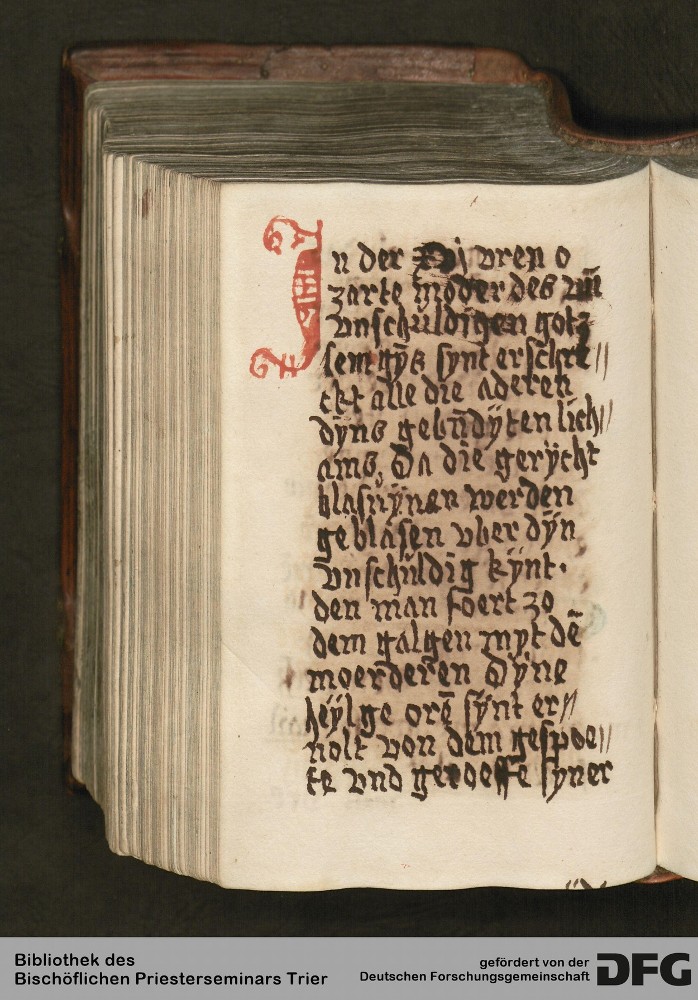 In der vj vren o
zarte moder des vn̄
vnschuldigen gotz
lemgÿs synt erschre//
ckt alle die aderen
dÿns gebn̄dÿten lich//
ams, Da die gerÿcht
blasuÿnen werden
geblasen vber dÿn
vnschuldig kÿnt.
den man foert zo
dem galgen myt dē
moerderen Dÿne
heÿlge orē sÿnt er//
uolt von dem gespoe//
te vnd geroeffe syner
Bibliothek des
Bischöflichen Priesterseminars Trier
gefördert von der
Deutschen Forschungsgemeinschaft DFG